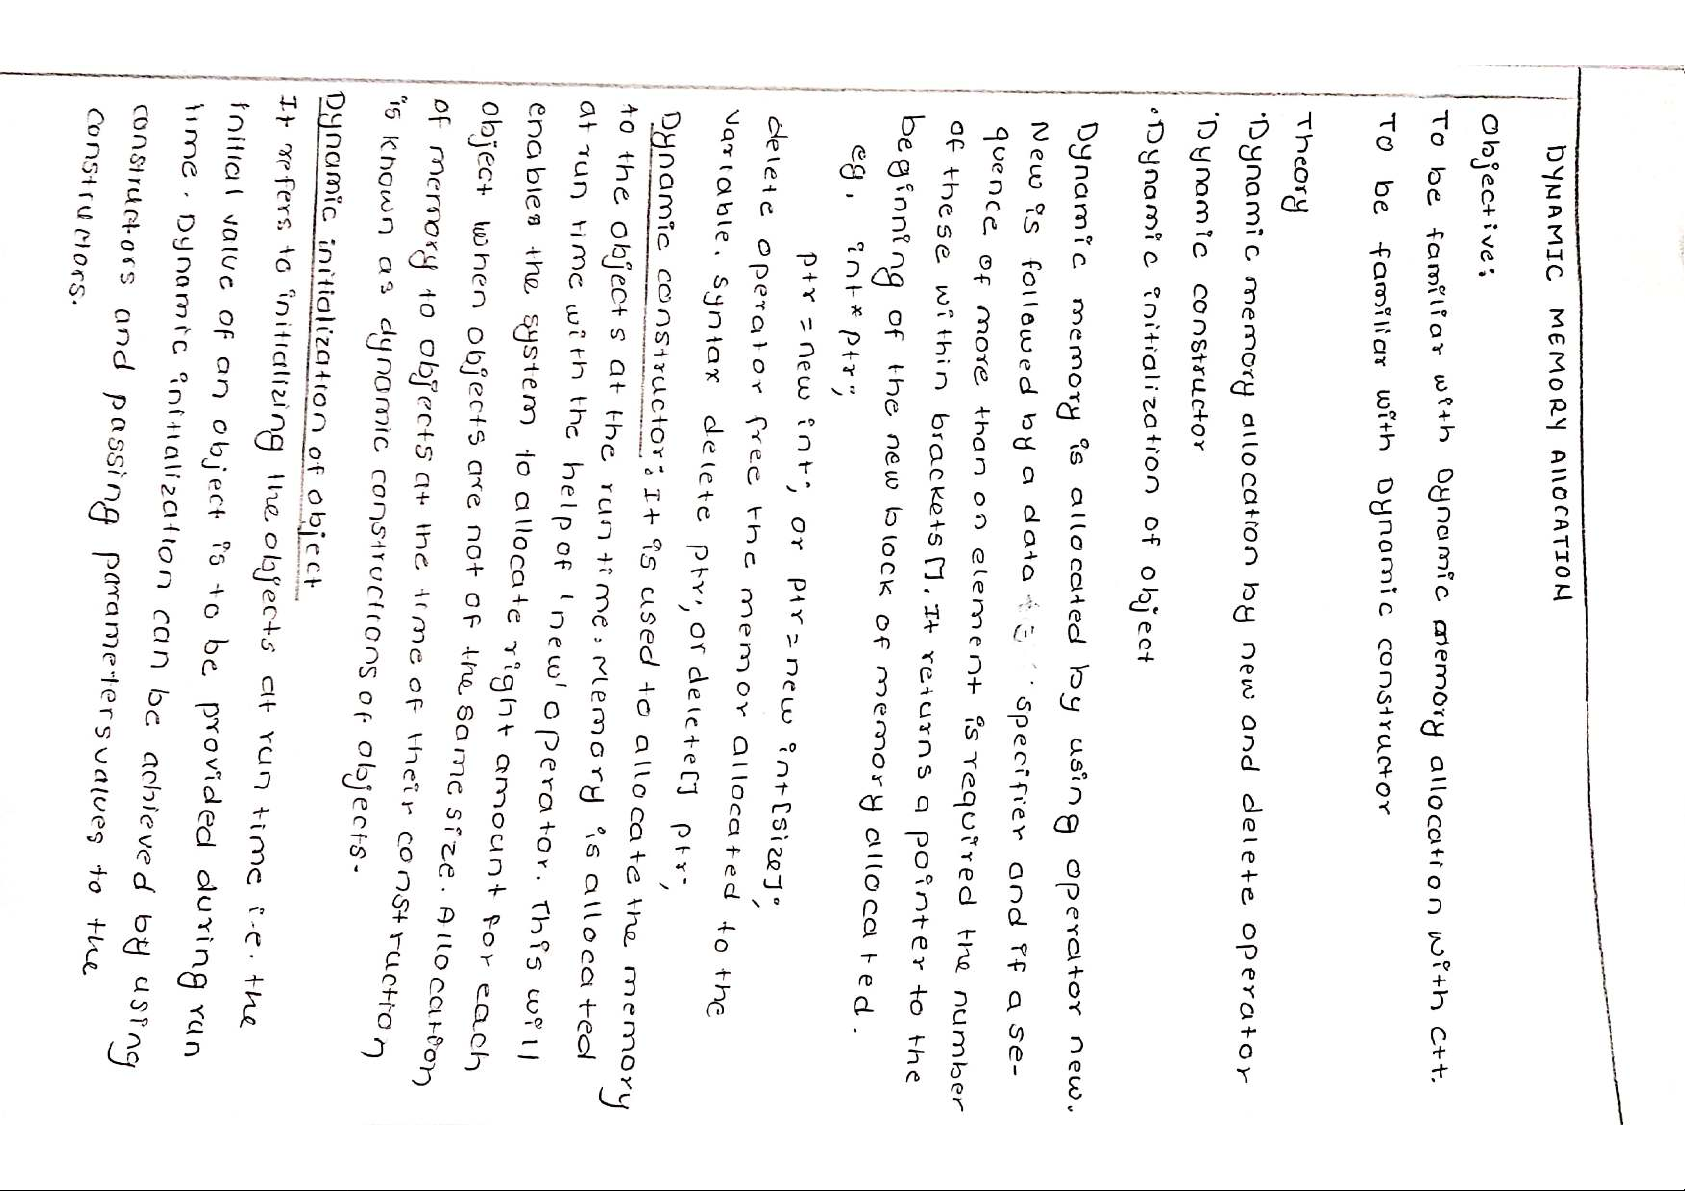 DYNAMIC MEMORY AllOCATION
Objective:
To be familiar with Dynamic memory allocation with C++.
To be familiar with Dynamic constructor
Theory
·Dynamic memory allocation by new and delete operator
·Dynamic constructor
·Dynamic initialization of object
Dynamic memory is allocated by using operator new.
New is followed by a data specifier and if a se-
quence of more than on element is required the number
of these within brackets []. It returns a pointer to the
beginning of the new block of memory allocated.
eg, int* ptr;
ptr = new int; or ptr = new int[size];
delete operator free the memor allocated to the
variable. syntax delete ptr; or delete[] ptr;
Dynamic constructor: It is used to allocate the memory
to the objects at the run time. Memory is allocated
at run time with the help of 'new' operator. This will
enables the system to allocate right amount for each
object when objects are not of the same size. Allocation
of memory to objects at the time of their construction
is known as dynamic constructions of objects.
Dynamic initialization of object
It refers to initializing the objects at run time i.e. the
initial value of an object is to be provided during run
time. Dynamic initialization can be achieved by using
constructors and passing parameters values to the
constructors.